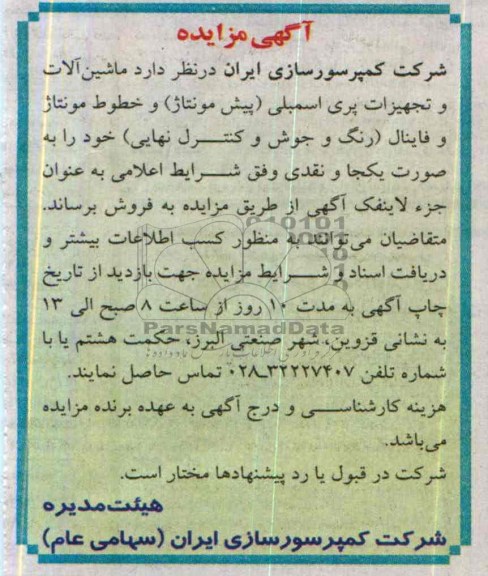 آگهی مزایده
شرکت کمپرسورسازی ایران درنظر دارد ماشین‌آلات
و تجهیزات پری اسمبلی (پیش مونتاژ) و خطوط مونتاژ
و فاینال (رنگ و جوش و کنترل نهایی) خود را به
صورت یکجا و نقدی وفق شرایط اعلامی به عنوان
جزء لاینفک آگهی از طریق مزایده به فروش برساند.
متقاضیان می‌توانند به منظور کسب اطلاعات بیشتر و
دریافت اسناد و شرایط مزایده جهت بازدید از تاریخ
چاپ آگهی به مدت ۱۰ روز از ساعت ۸ صبح الی ۱۳
ParsNamadData
به نشانی قزوین، شهر صنعتی البرز، حکمت هشتم یا با
شماره تلفن ۳۲۲۲۷۴۰۷-۰۲۸ تماس حاصل نمایند.
هزینه کارشناسی و درج آگهی به عهده برنده مزایده
می‌باشد.
شرکت در قبول یا رد پیشنهادها مختار است.
هیئت‌مدیره
شرکت کمپرسورسازی ایران (سهامی عام)